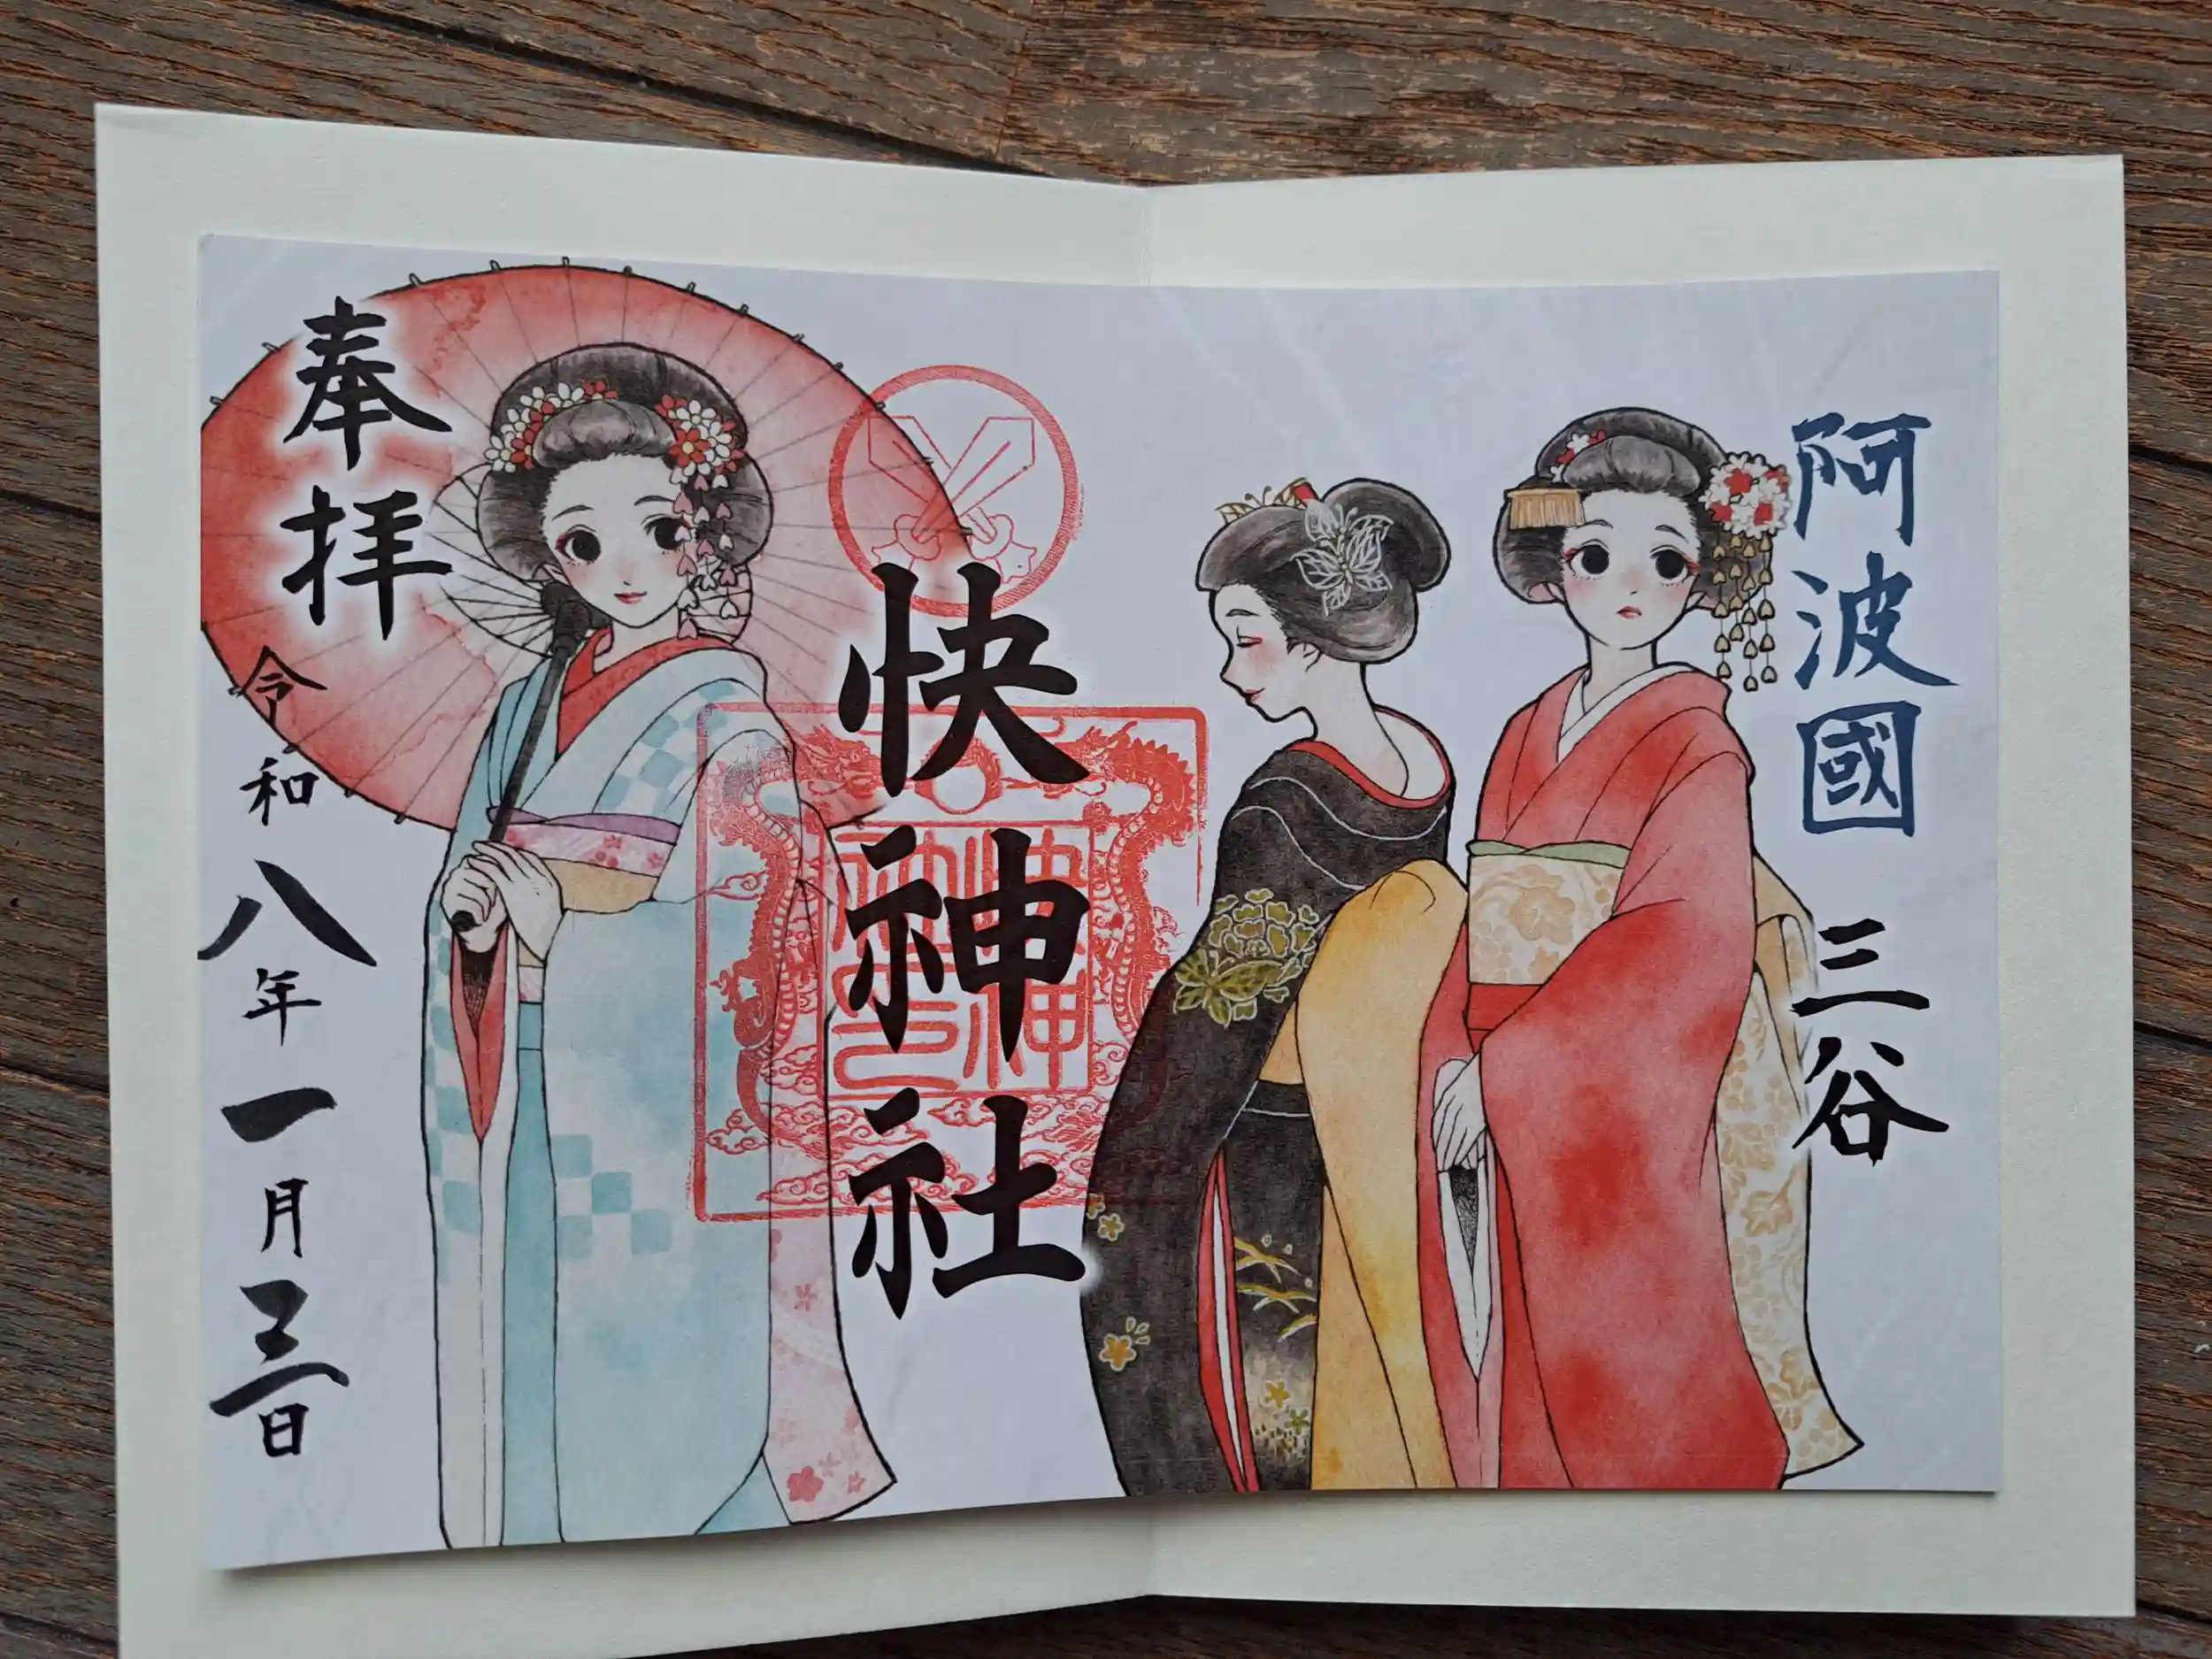 阿波國
三谷
快神社
奉拝
令和八年一月三日